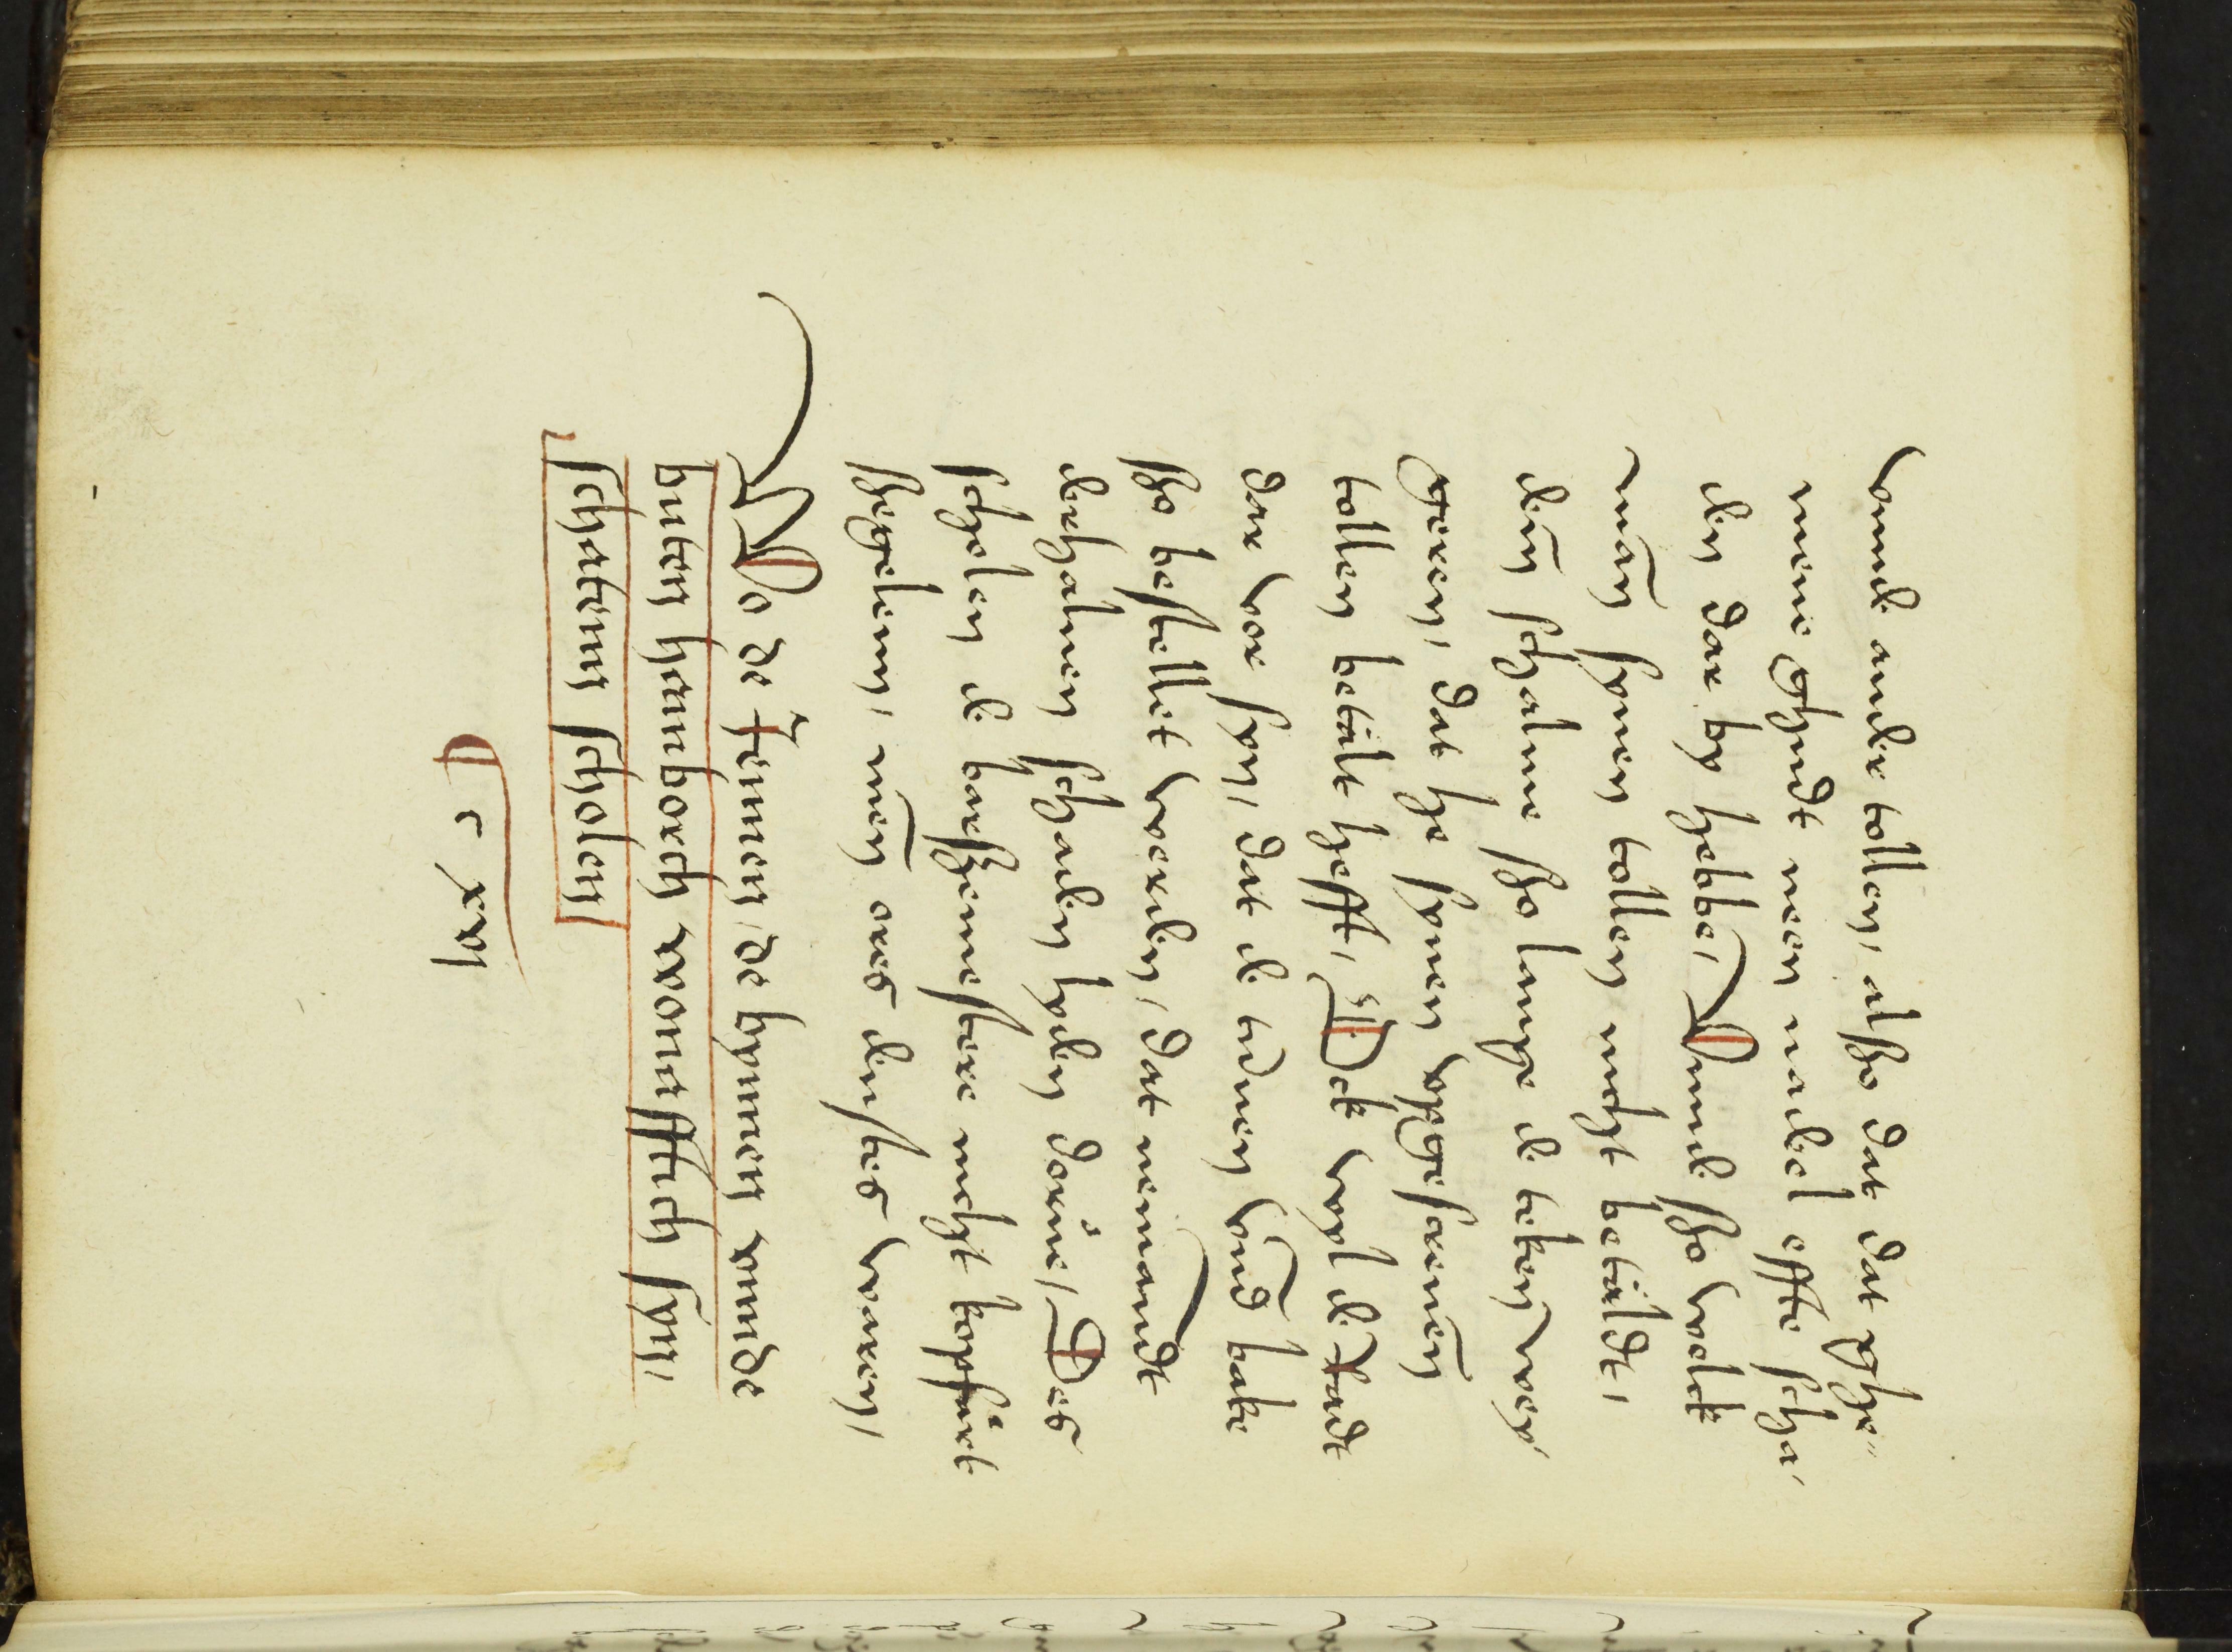 vnnde ander tollen, alßo dat dat ghe„
mene Ghudt neen nadel effte scha,
den dar by hebbe, Vnnde ßo welck
man synen tollen nicht betaldt,
den schalme ßo lange de teken wey,
geren, dat he synen
tollen betalt hefft, Ock wyl de Radt
dar vor syn, dat de tunen vnd bake
ßo bestellet werden, dat nemandt
derhaluen schaden lyden dorue, Des
scholen de barßemestere nicht kopfart
ßegelenn, men ores denstes waren,
Wo de Jennen, de bynnen vnnde
buten hamborch wonafftich syn,
schatenn scholen